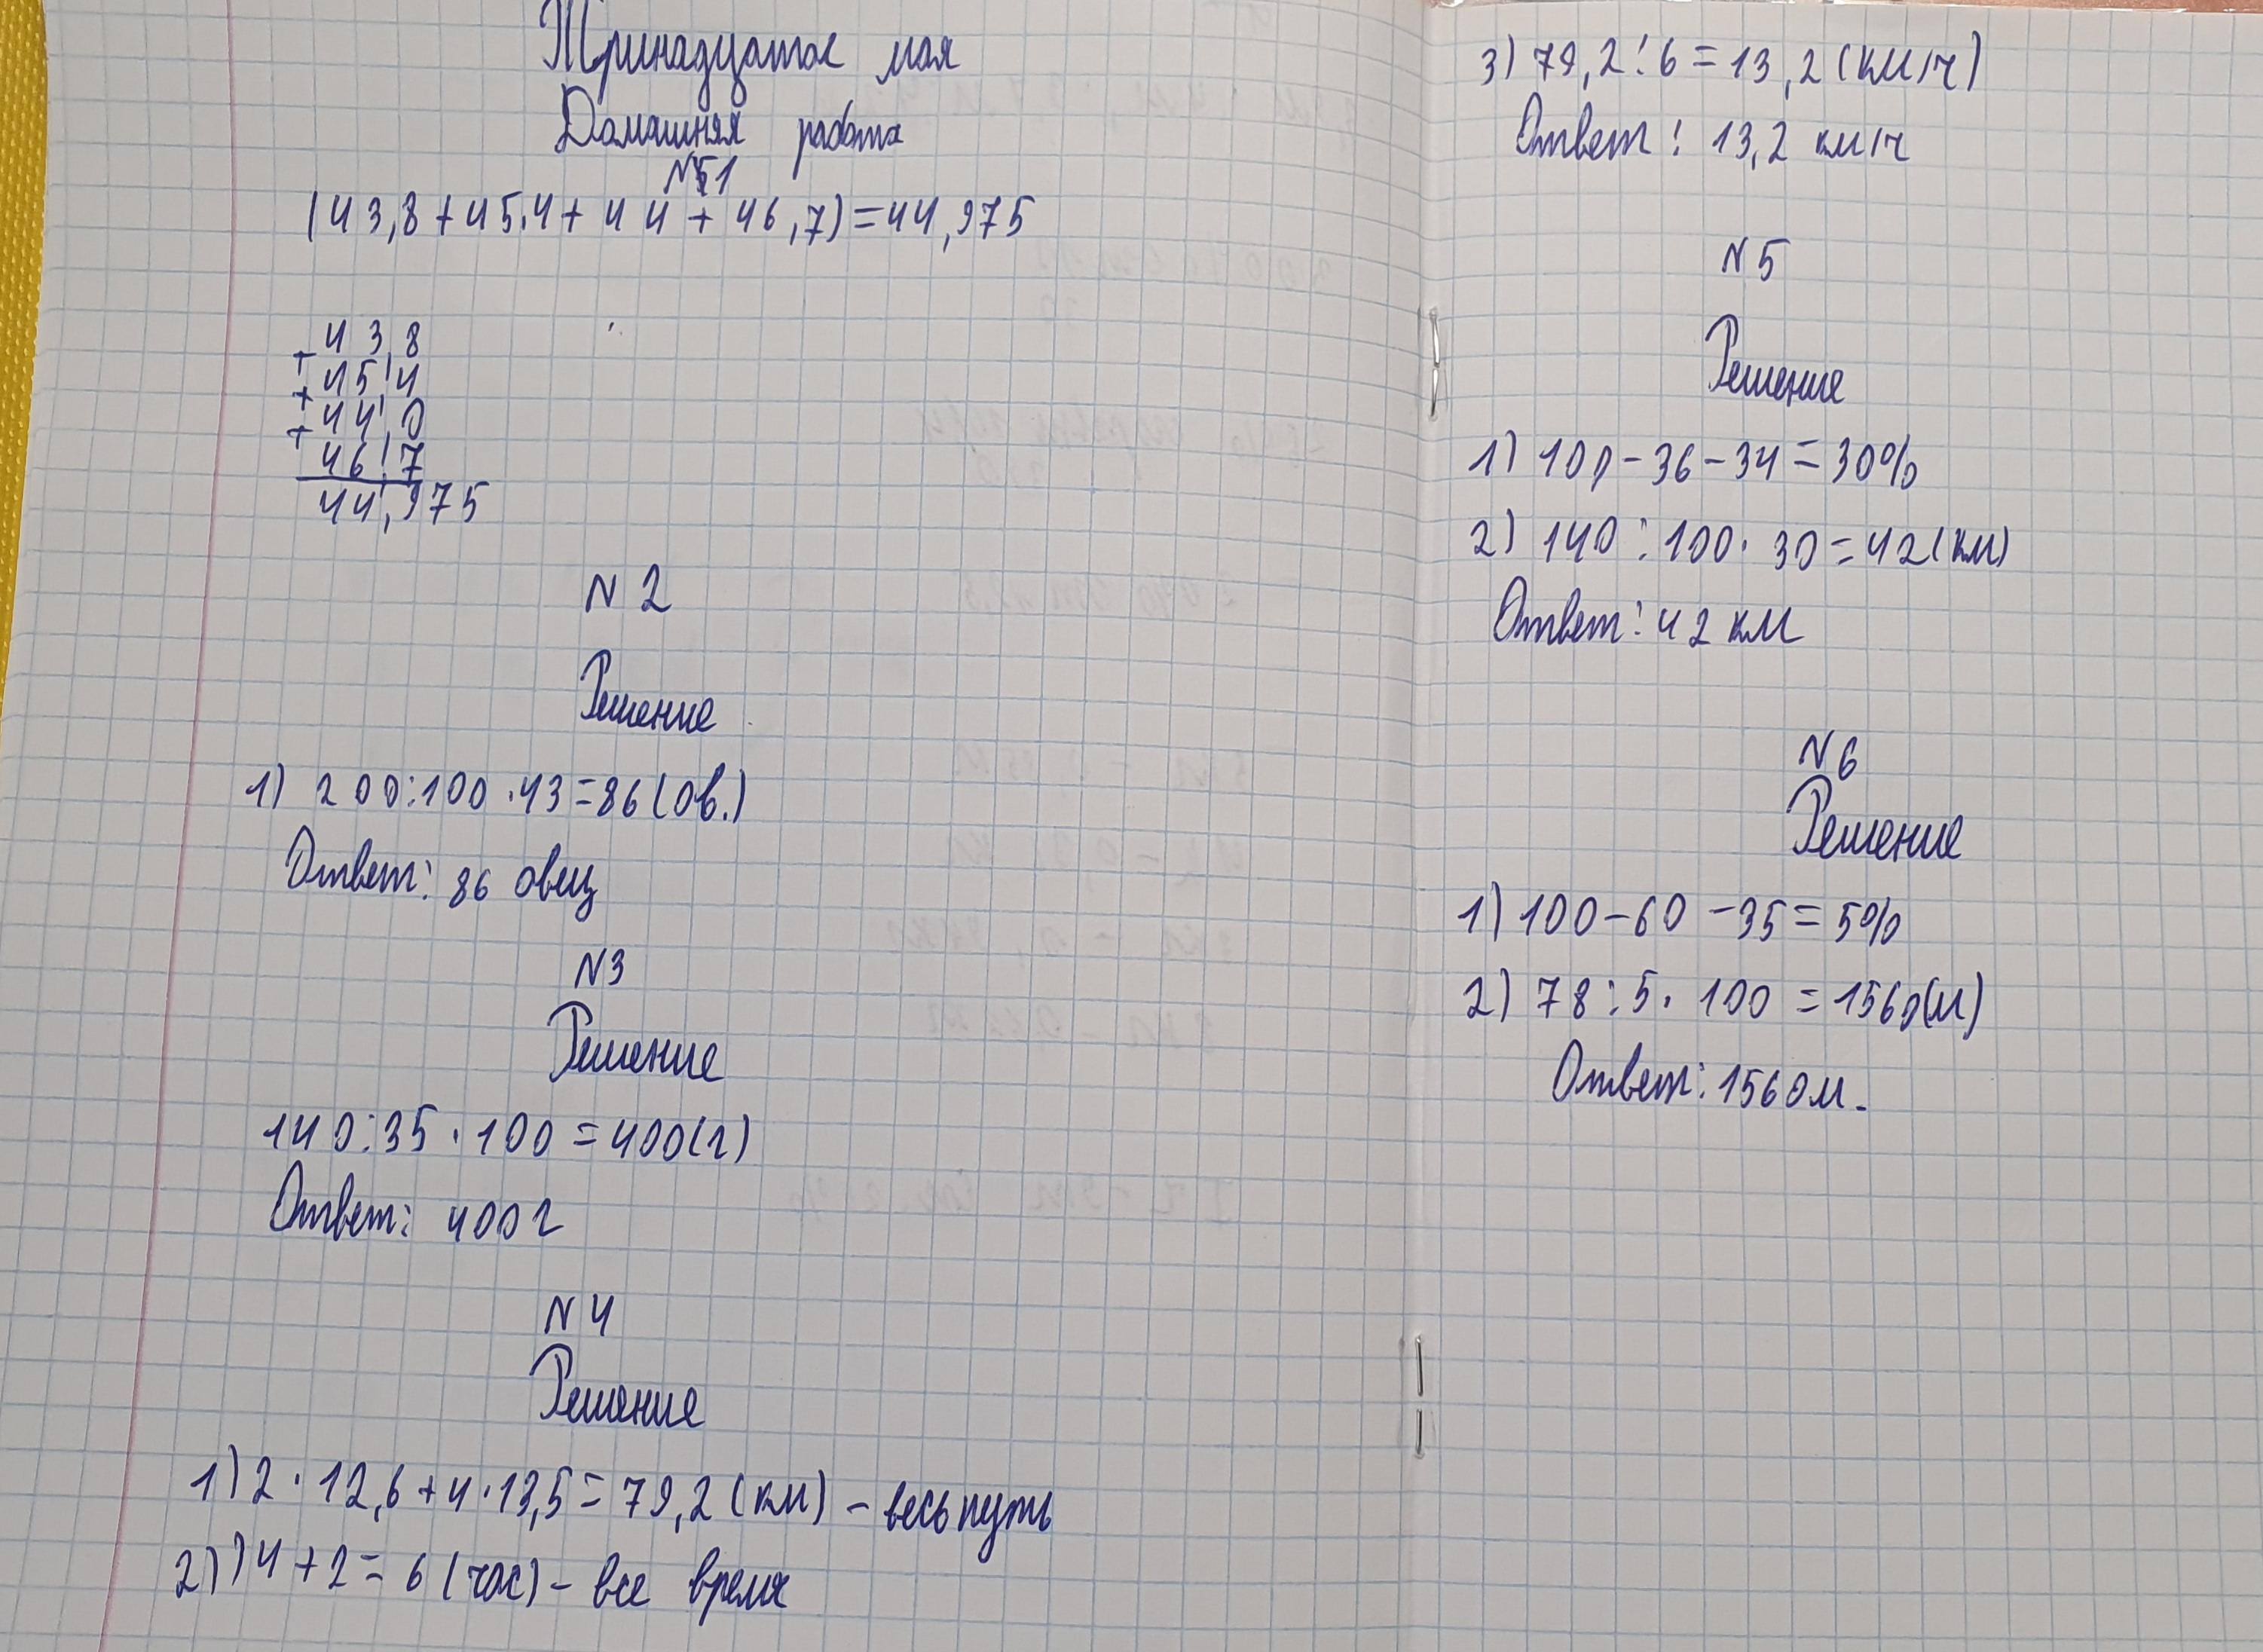 Тринадцатое мая
Домашняя работа
№1
(43,8+45,4+44+46,7)=44,975
43,8
+
45,4
+
44,0
+
46,7
44,975
N 2
Решение
1) 200:100·43=86(ов.)
Ответ: 86 овец
N3
Решение
140:35·100=400(г)
Ответ: 400г
N 4
Решение
1) 2·12,6+4·13,5=79,2(км) – весь путь
2)) 4+2=6(час) – все время
3) 79,2:6=13,2(км/ч)
Ответ: 13,2 км/ч
N 5
Решение
1) 100-36-34=30%
2) 140:100·30=42(км)
Ответ: 42 км
N 6
Решение
1) 100-60-35=5%
2) 78:5·100=1560(м)
Ответ: 1560м.